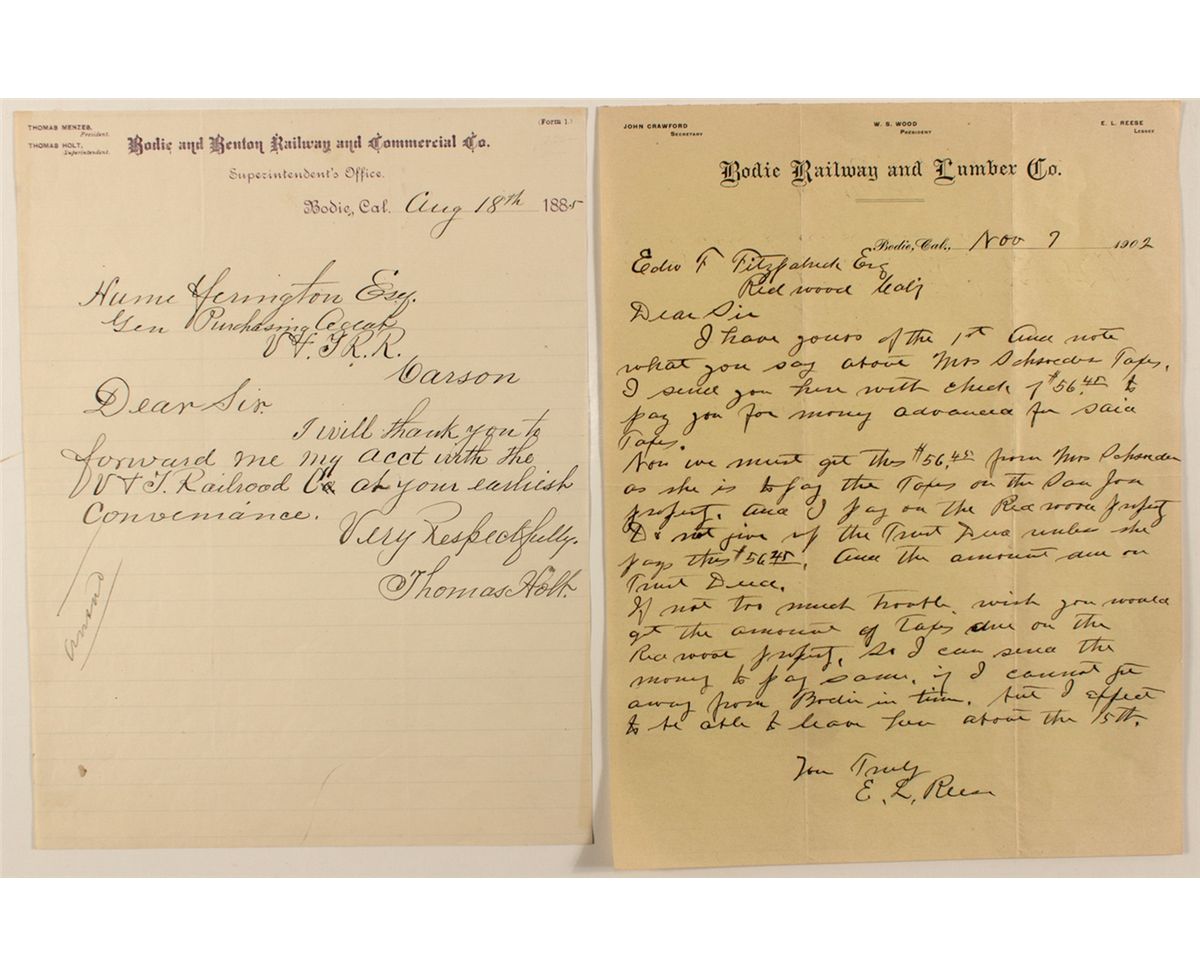 THOMAS MENZEB,
President.
THOMAS HOLT,
Superintendent.
(Form 1.)
Bodie and Benton Railway and Commercial Co.
Superintendent's Office.
Bodie, Cal. Aug 18th 1885
Hume Yerington Esq.
Gen Purchasing Agent
V & T R.R.
Carson
Dear Sir.
I will thank you to
forward me my acct with the
V & T. Railroad Co at your earliest
Conveniance.
Very Respectfully.
Thomas Holt.
JOHN CRAWFORD
SECRETARY
W. S. WOOD
PRESIDENT
E. L. REESE
LESSEE
Bodie Railway and Lumber Co.
Bodie, Cal., Nov 7 1902
Edw F Fitzpatrick Esq
Redwood Cal
Dear Sir
I have yours of the 1st And note
what you say above Mrs Schroeder Taxes.
I send you here with check of $56.45 to
pay you for money advanced for said
Taxes.
Now we must get this $56.45 from Mrs Schroeder
as she is to pay the Taxes on the San Jose
property. And I pay on the Redwood property
Do not give up the Trust Deed unless she
pays this $56.45. And the amount due on
Trust Deed.
If not too much trouble, wish you would
get the amount of Taxes due on the
Redwood property, So I can send the
money to pay same, if I cannot get
away from Bodie in time. but I expect
to be able to leave here about the 15th.
Your Truly
E. L. Reese